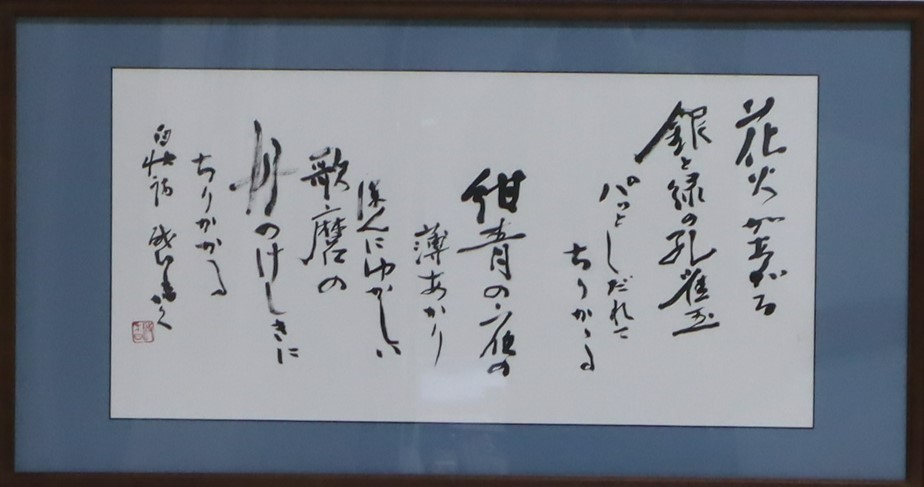 花火があがる
銀と緑の孔雀玉
パッとしだれて
ちりかゝる
紺青の夜の
薄あかり
ほんにゆかしい
歌麿の
舟のけしきに
ちりかかる
白秋詩